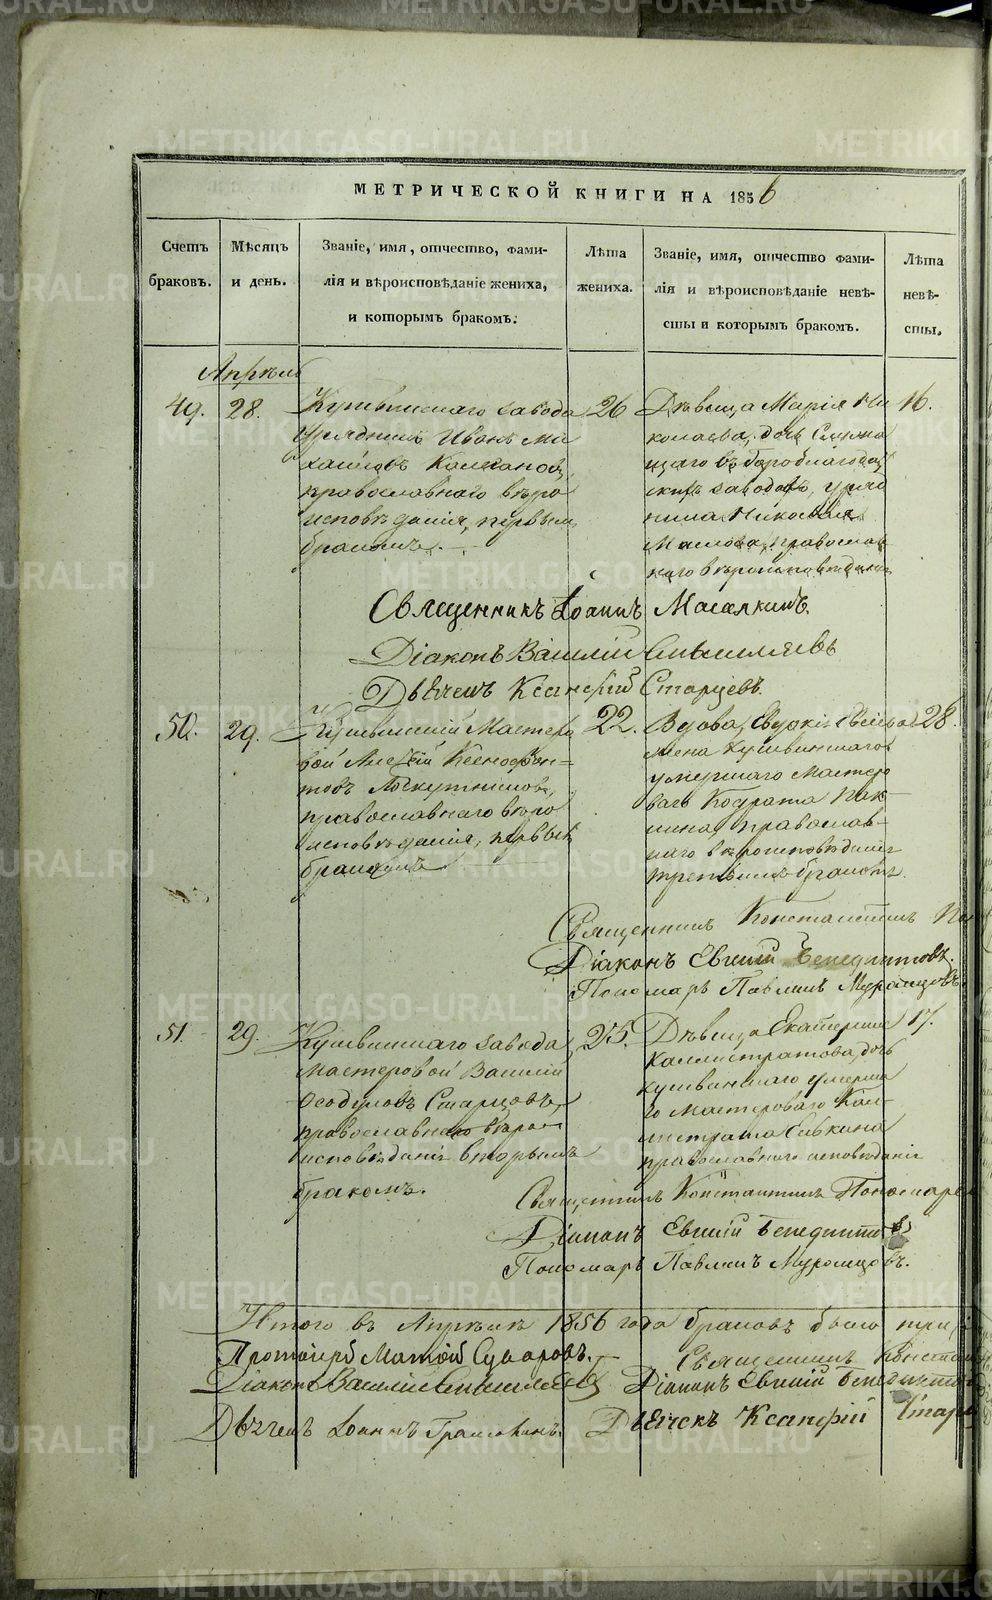 МЕТРИЧЕСКОЙ КНИГИ НА 1856
Счетъ браковъ.
Мѣсяцъ и день.
Званіе, имя, отчество, фами-
лія и вѣроисповѣданіе жениха,
и которымъ бракомъ.
Лѣта жениха.
Званіе, имя, отчество фами-
лія и вѣроисповѣданіе невѣ-
сты и которымъ бракомъ.
Лѣта невѣ-
сты.
Апрѣль
49. 28.
Кушвинскаго завода
урядникъ Иванъ Ми
хайловъ
православнаго вѣро
исповѣданія, первымъ
бракомъ.
26
Дѣвица Марія Ни
колаева, дочь Служа
щаго въ Гороблагодат
скихъ заводахъ, уряд
ника Николая
Маслова, православ
наго вѣроисповѣданія
16.
Священникъ Іоаннъ Масалкинъ.
Діаконъ Василій
Дьячекъ Ксанфій Старцевъ.
50. 29.
Кушвинскій Мастеро
вой Алексій Ксенофон-
товъ Лоскутниковъ,
православнаго вѣро
исповѣданія, первымъ
бракомъ
22.
Вдова, Евдокія
жена Кушвинскаго
умершаго Мастеро
ваго Кодрата
православ-
наго вѣроисповѣданія
третьимъ бракомъ.
28.
Священникъ Константинъ
Діаконъ Евгеній Бенедиктовъ.
Пономарь Павлинъ Муромцовъ
51. 29.
Кушвинскаго завода
Мастеровой Василій
Старцовъ,
православнаго вѣро
исповѣданія вторымъ
бракомъ.
25.
Дѣвица Екатерина
Каллистратова, дочь
кушвинскаго умерша
го Мастероваго Кал-
листрата Сивкина
православнаго исповѣданія
17.
Священникъ Константинъ Пономарев
Діаконъ Евгеній Бенедиктовъ
Пономарь Павлинъ Муромцовъ.
Итого въ Апрѣлѣ 1856 года браковъ было три
Протоіерей
Священникъ Констан
Діаконъ Василій
Діаконъ Евгеній Бенедикто
Дьячекъ Іоаннъ
Дьячекъ Ксанфій Старц
METRIKI.GASO-URAL.RU